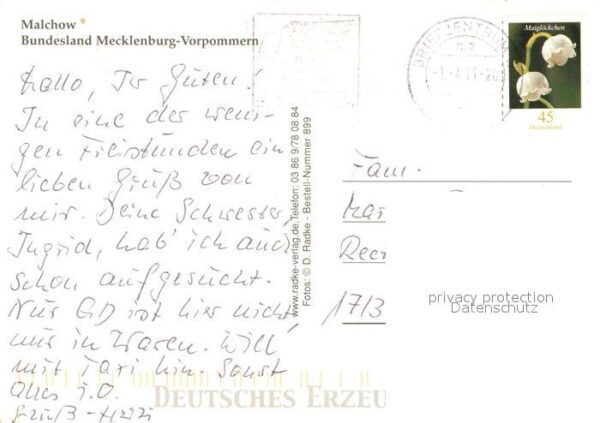 Malchow
Bundesland Mecklenburg-Vorpommern
Hallo, Ihr Guten!
In eine der weni-
gen Freistunden ein
lieben Gruß von
mir. Deine Schwester,
Ingrid, hab' ich auch
schon aufgesucht.
Nur GD ist hier nicht,
nur in Waren. Will
mit Taxi hin. Sonst
alles i.O.
Gruß -
www.radke-verlag.de, Telefon: 03 86 9/78 08 84
Fotos: © D. Radke - Bestell-Nummer 899
BRIEFZENTRUM
Maiglöckchen
45
Deutschland
Fam.
Mar
1713
privacy protection
Datenschutz
DEUTSCHES ERZEU